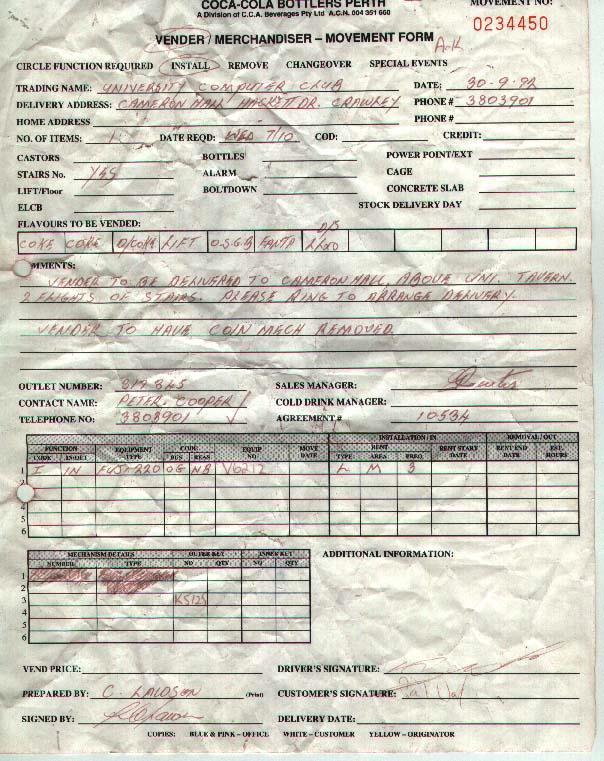 COCA-COLA BOTTLERS PERTH
MOVEMENT NO:
A Division of C.C.A. Beverages Pty Ltd A.C.N. 004 351 660
0234450
VENDER / MERCHANDISER – MOVEMENT FORM
A-K
CIRCLE FUNCTION REQUIRED INSTALL REMOVE CHANGEOVER SPECIAL EVENTS
TRADING NAME: UNIVERSITY COMPUTER CLUB DATE: 30-9-92
DELIVERY ADDRESS: CAMERON HALL HACKETT DR. CRAWLEY PHONE # 3803901
HOME ADDRESS PHONE #
NO. OF ITEMS: 1 DATE REQD: WED 7/10 COD: CREDIT:
CASTORS BOTTLES POWER POINT/EXT
STAIRS No. YES ALARM CAGE
LIFT/Floor BOLTDOWN CONCRETE SLAB
ELCB STOCK DELIVERY DAY
FLAVOURS TO BE VENDED:
COKE COKE D/COKE LIFT O.S.G.B FANTA
MMENTS:
VENDER TO BE DELIVERED TO CAMERON HALL, ABOVE UNI. TAVERN.
2 FLIGHTS OF STAIRS. PLEASE RING TO ARRANGE DELIVERY.
VENDER TO HAVE COIN MECH REMOVED
OUTLET NUMBER: 317345 SALES MANAGER:
CONTACT NAME: PETER COOPER COLD DRINK MANAGER:
TELEPHONE NO: 3803901 AGREEMENT # 10534
INSTALLATION / IN REMOVAL / OUT
FUNCTION EQUIPMENT CODE EQUIP MOVE RENT RENT START RENT END EST.
CODE IN/OUT TYPE BUS REAS NO DATE TYPE AREA FREQ DATE DATE HOURS
1 I IN FUJI 220 OG NB V6212 L M 3
2
3
4
5
6
MECHANISM DETAILS OUTER KEY INNER KEY ADDITIONAL INFORMATION:
NUMBER TYPE NO QTY NO QTY
1
2
3 K5125
4
5
6
VEND PRICE: DRIVER'S SIGNATURE:
PREPARED BY: C. LAWSON (Print) CUSTOMER'S SIGNATURE:
SIGNED BY: DELIVERY DATE:
COPIES: BLUE & PINK - OFFICE WHITE - CUSTOMER YELLOW - ORIGINATOR